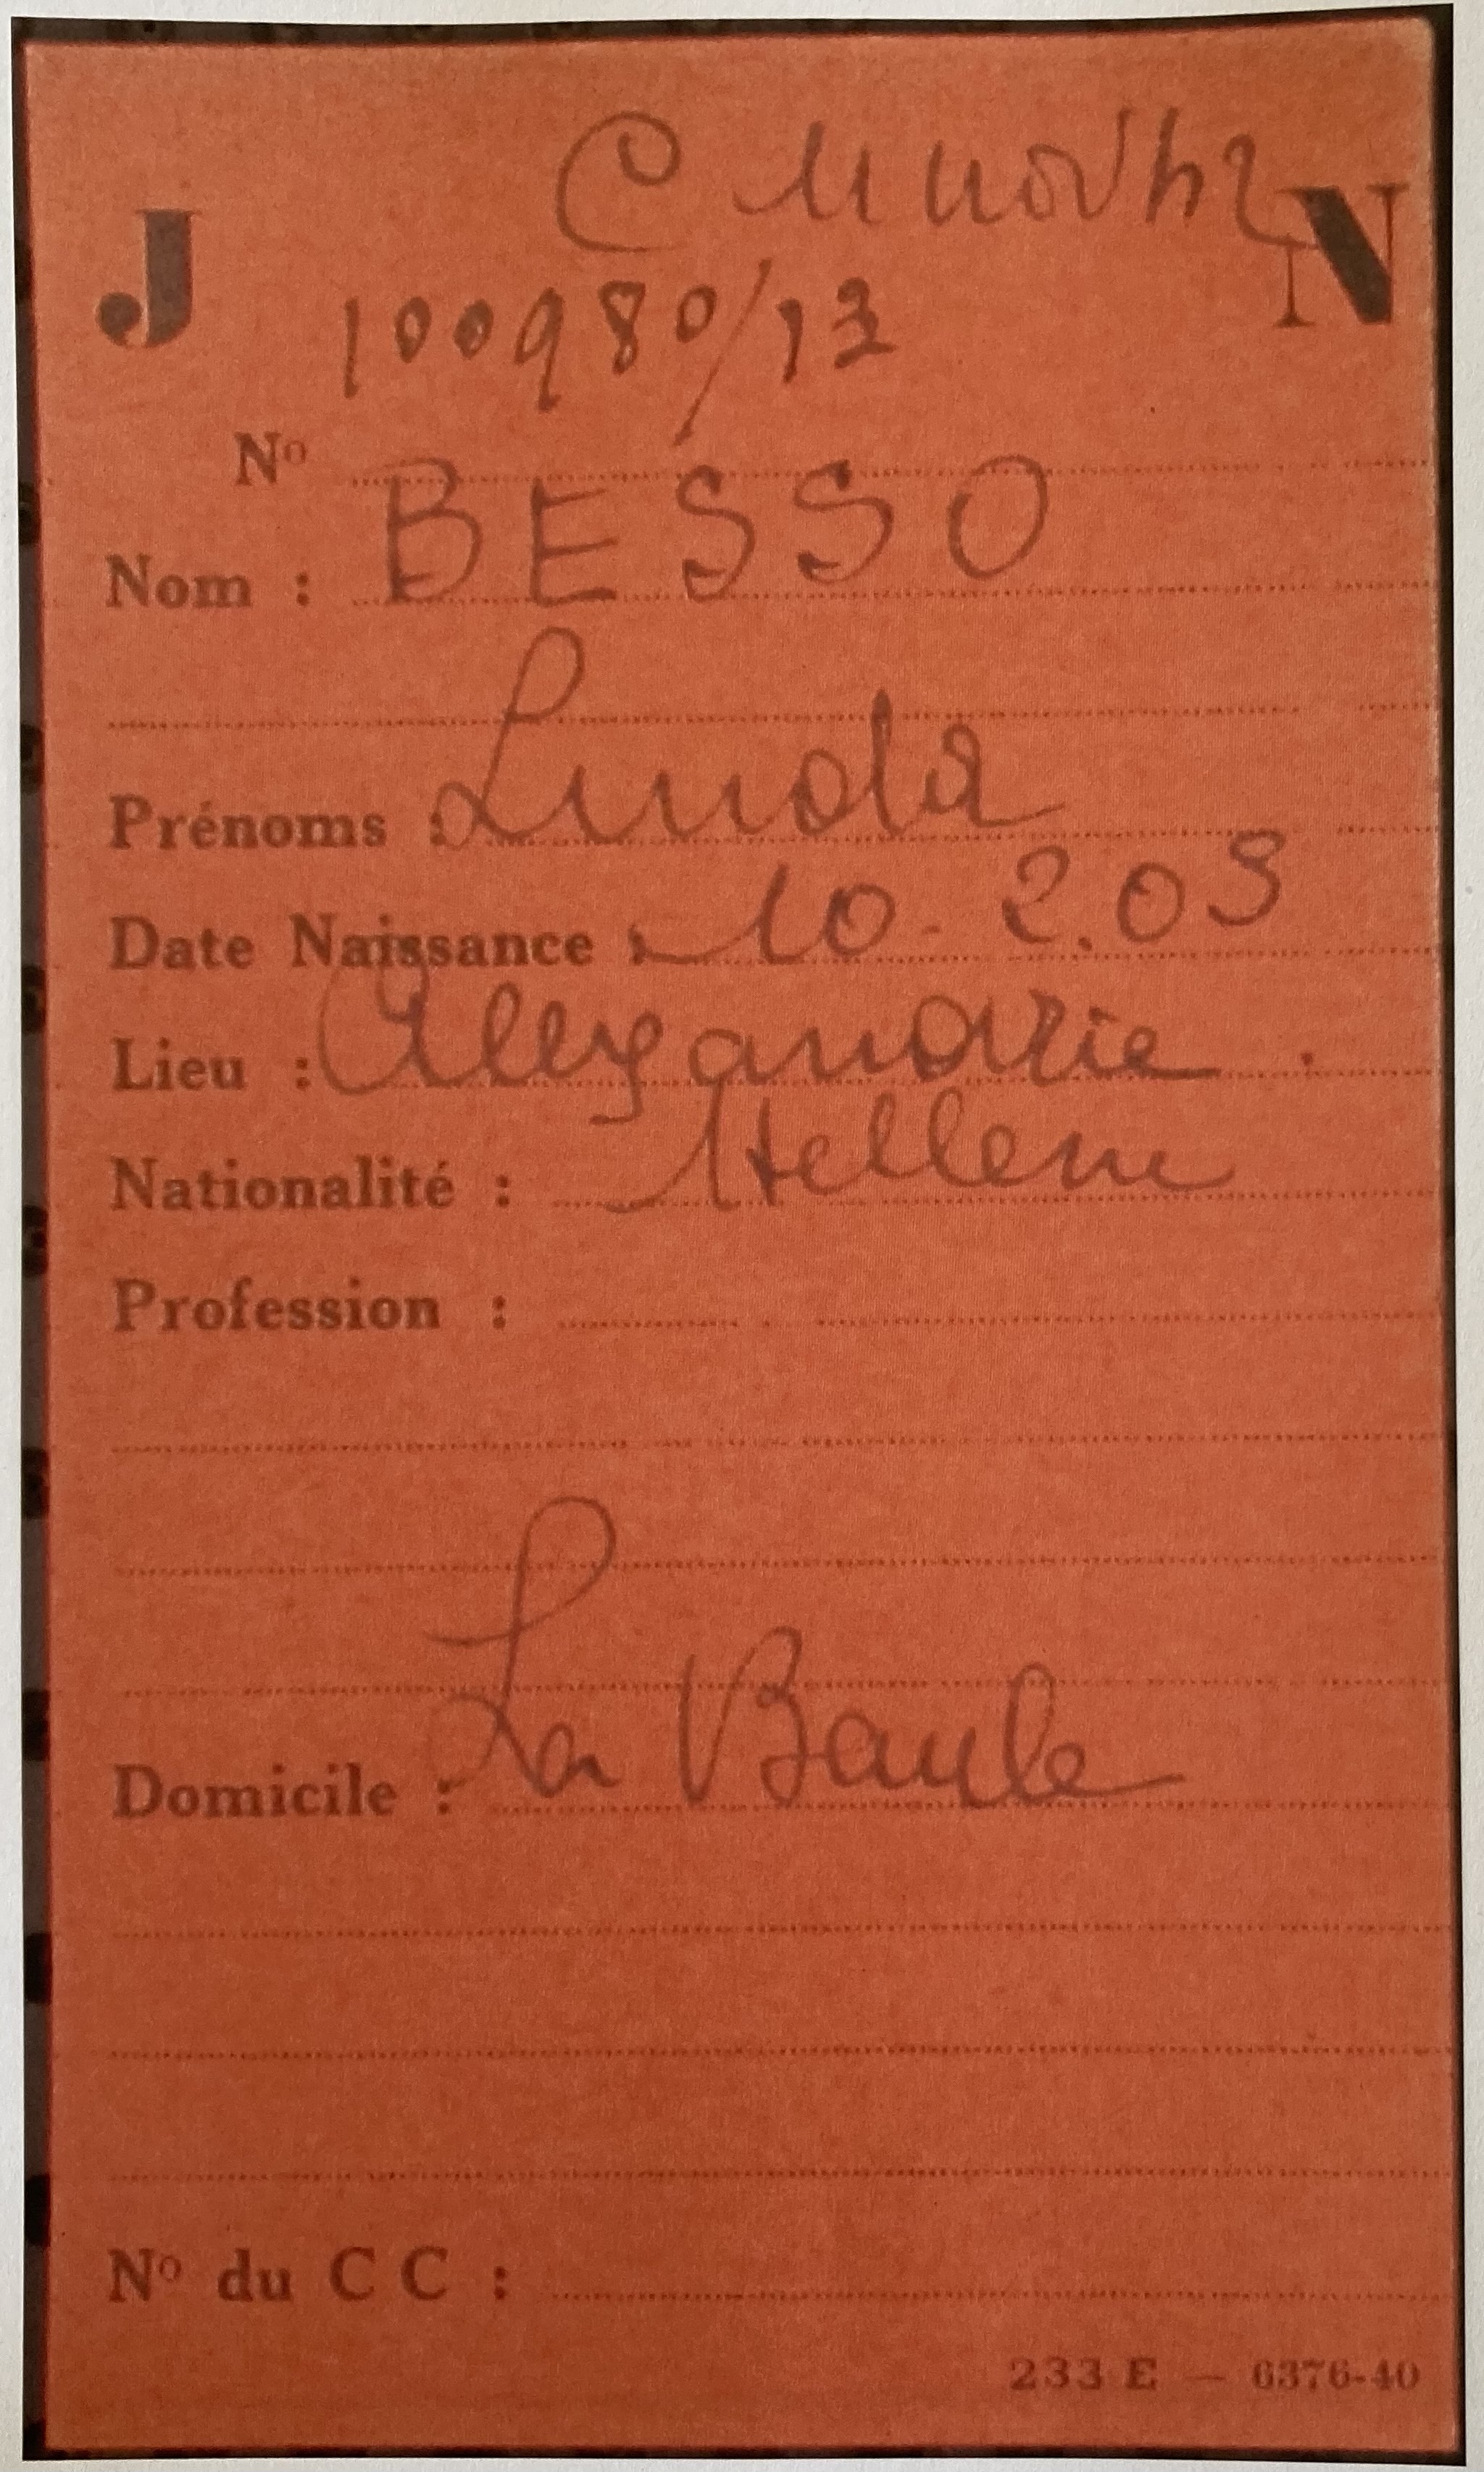 C 11 nov 42
J N
100980/13
Nº
Nom : BESSO
Prénoms : Linda
Date Naissance : 10.2.09
Lieu : Alexandrie.
Nationalité : Hellene
Profession :
Domicile : La Baule
Nº du C C :
233 E — 6376-40